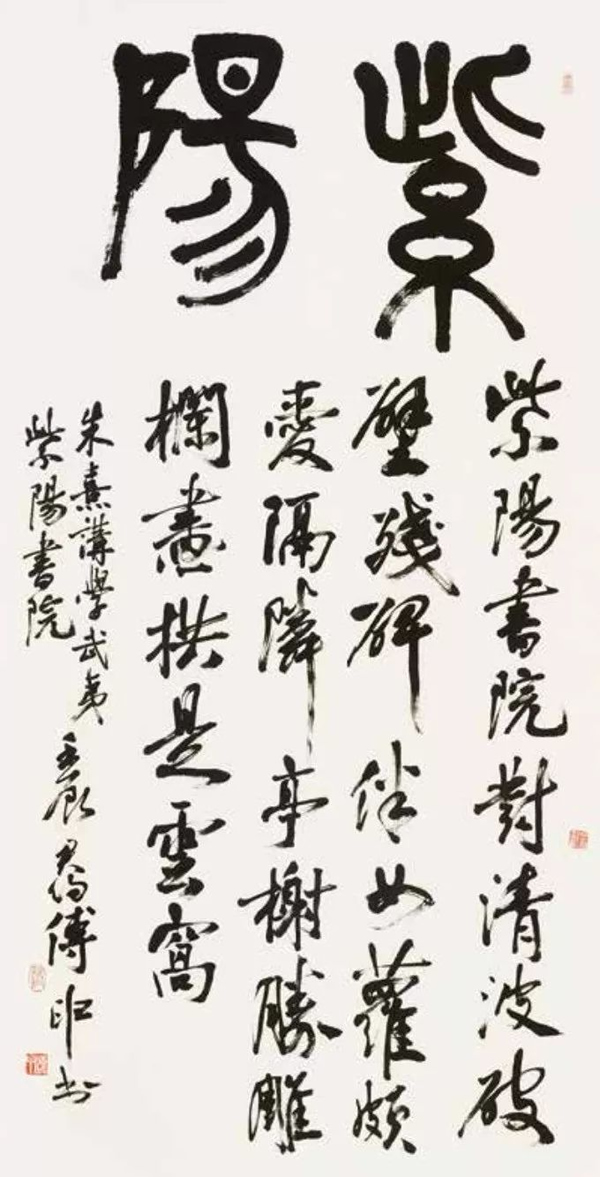 紫陽
紫陽書院對清波破
壁殘碑伴女蘿頗
愛隔隣亭榭勝雕
欄畫栱是雲窩
朱熹講學武夷
紫陽書院
壬辰 傅 书